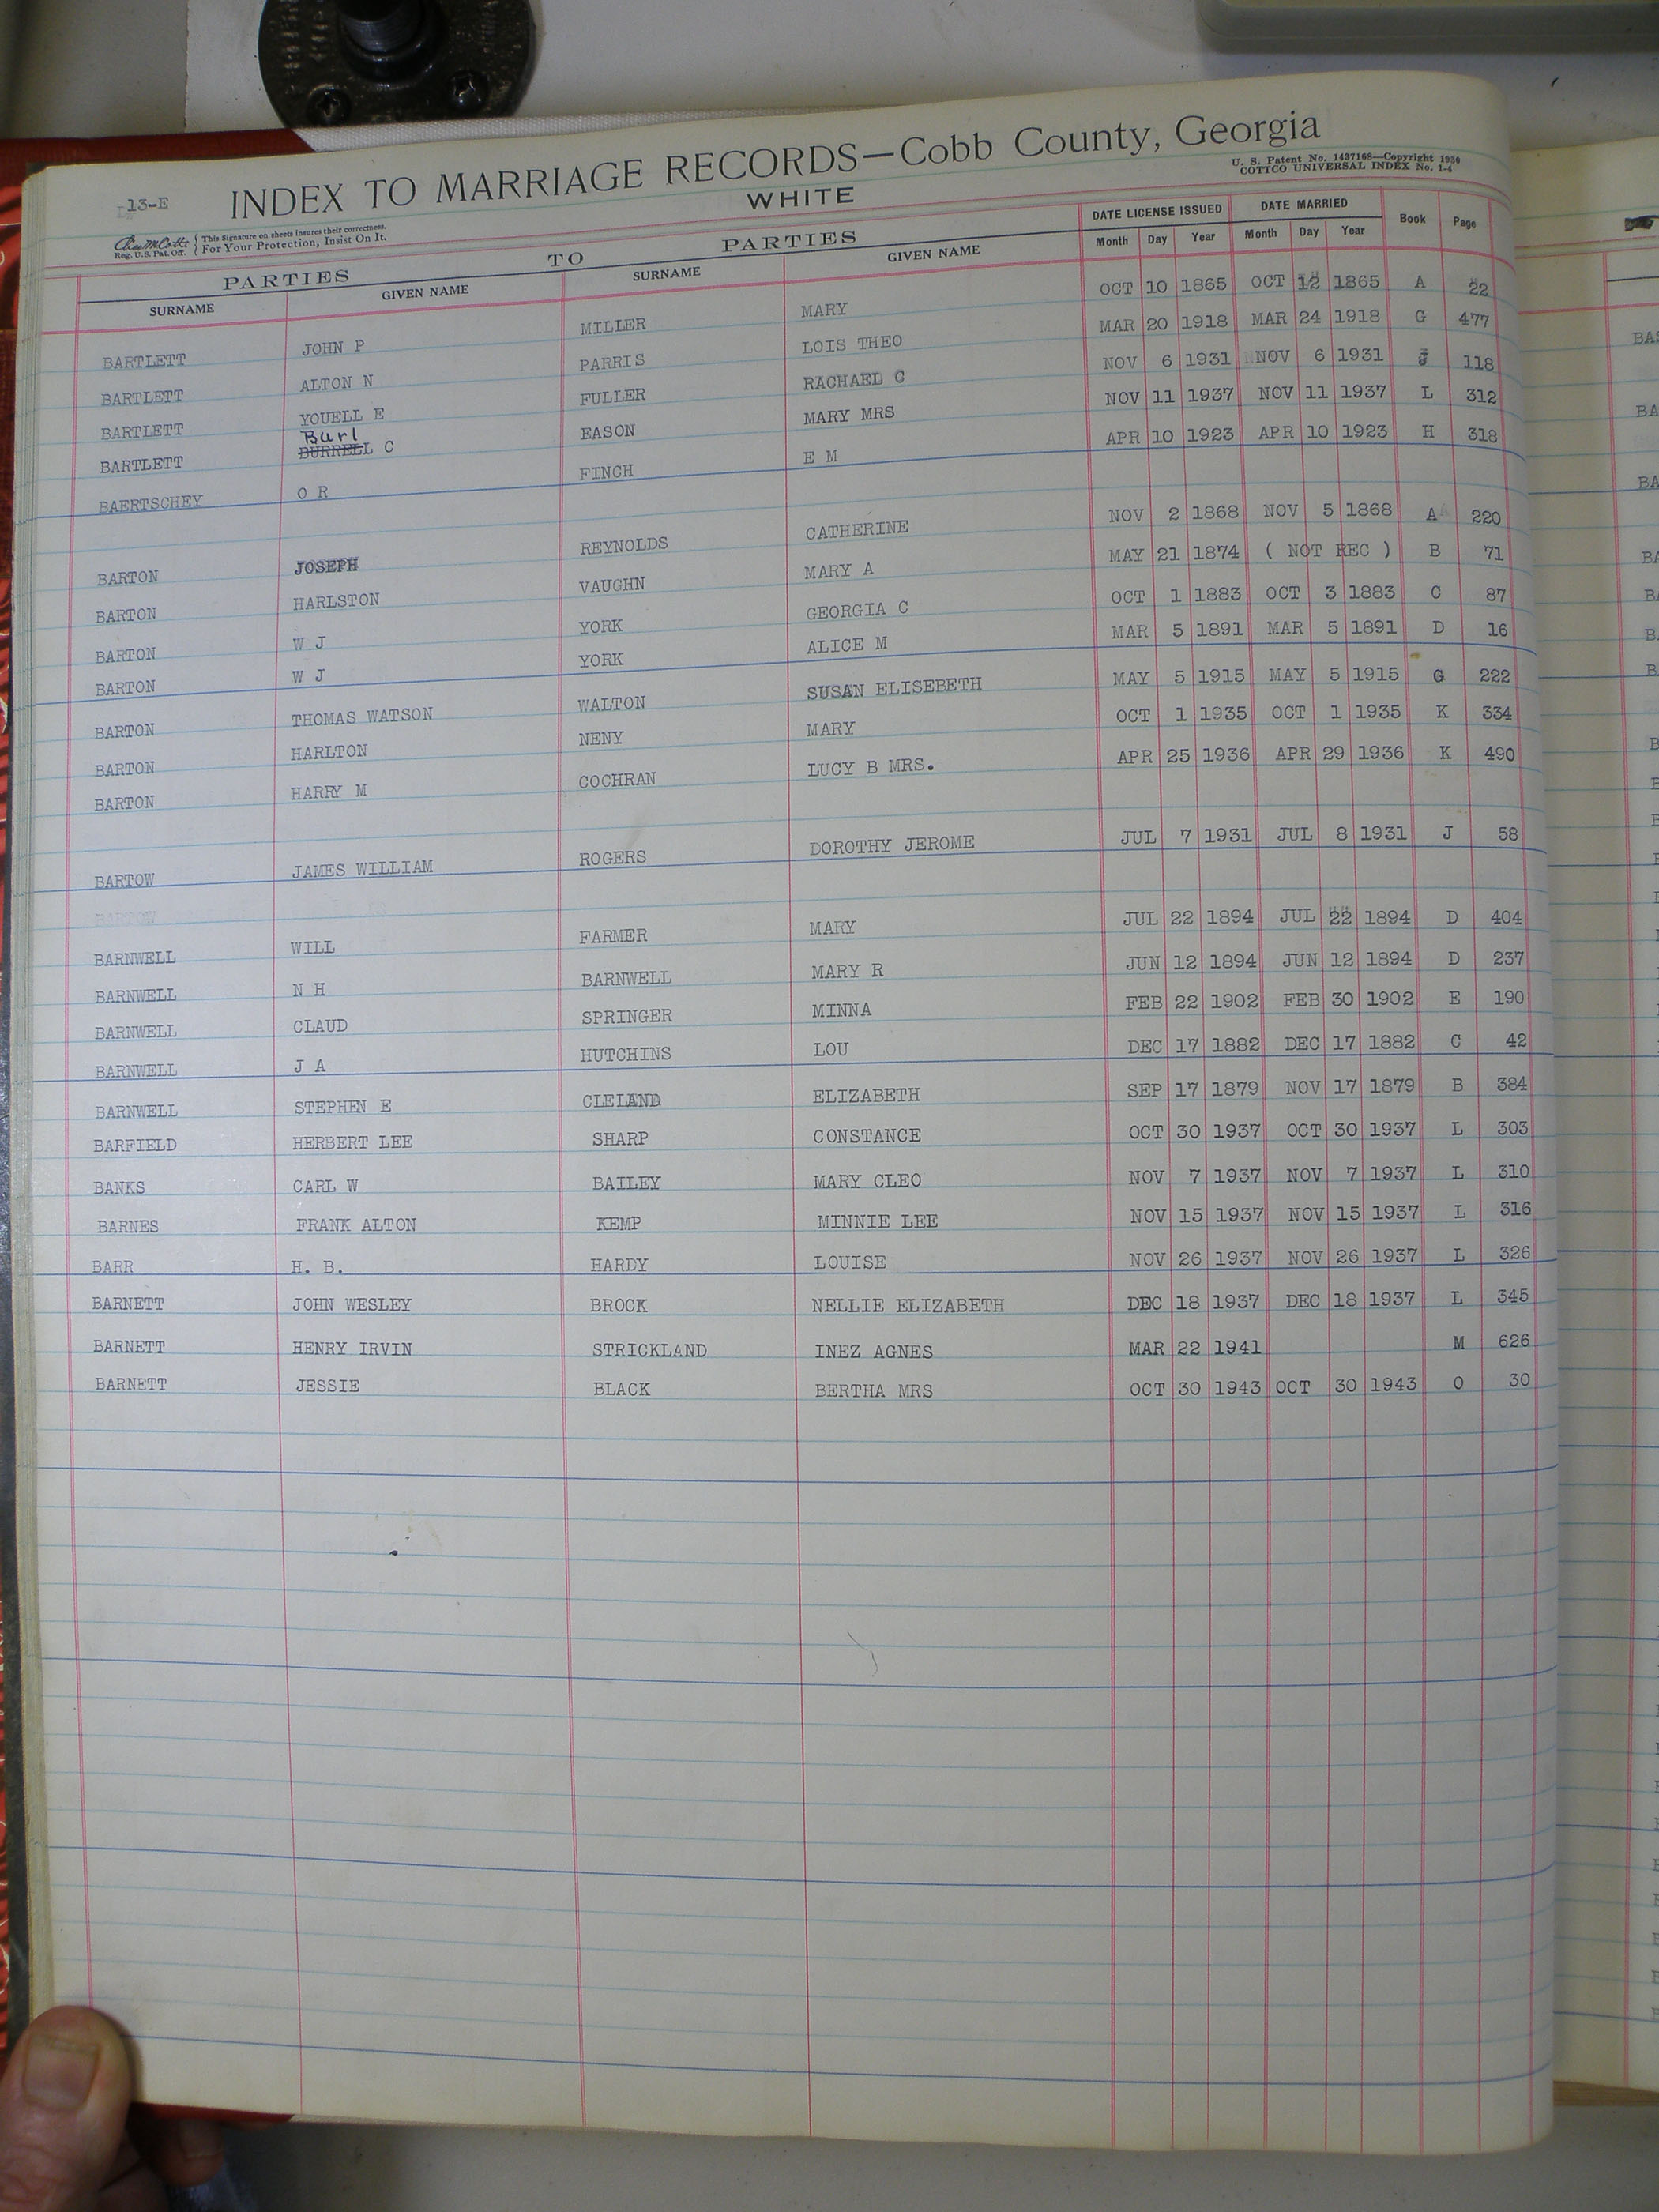 13-E INDEX TO MARRIAGE RECORDS—Cobb County, Georgia
WHITE
U. S. Patent No. 1437168—Copyright 1930
COTTCO UNIVERSAL INDEX No. 1-4
Reg. U.S. Pat. Off.
This Signature on sheets insures their correctness.
For Your Protection, Insist On It.
PARTIES TO PARTIES DATE LICENSE ISSUED DATE MARRIED Book Page
SURNAME GIVEN NAME SURNAME GIVEN NAME Month Day Year Month Day Year
BARTLETT JOHN P MILLER MARY OCT 10 1865 OCT 12 1865 A 22
BARTLETT ALTON N PARRIS LOIS THEO MAR 20 1918 MAR 24 1918 G 477
BARTLETT YOUELL E FULLER RACHAEL C NOV 6 1931 NOV 6 1931 J 118
Burl
BARTLETT BURRELL C EASON MARY MRS NOV 11 1937 NOV 11 1937 L 312
BAERTSCHEY O R FINCH E M APR 10 1923 APR 10 1923 H 318
BARTON JOSEPH REYNOLDS CATHERINE NOV 2 1868 NOV 5 1868 A 220
BARTON HARLSTON VAUGHN MARY A MAY 21 1874 ( NOT REC ) B 71
BARTON W J YORK GEORGIA C OCT 1 1883 OCT 3 1883 C 87
BARTON W J YORK ALICE M MAR 5 1891 MAR 5 1891 D 16
BARTON THOMAS WATSON WALTON SUSAN ELISEBETH MAY 5 1915 MAY 5 1915 G 222
BARTON HARLTON NENY MARY OCT 1 1935 OCT 1 1935 K 334
BARTON HARRY M COCHRAN LUCY B MRS. APR 25 1936 APR 29 1936 K 490
BARTOW JAMES WILLIAM ROGERS DOROTHY JEROME JUL 7 1931 JUL 8 1931 J 58
BARNWELL WILL FARMER MARY JUL 22 1894 JUL 22 1894 D 404
BARNWELL N H BARNWELL MARY R JUN 12 1894 JUN 12 1894 D 237
BARNWELL CLAUD SPRINGER MINNA FEB 22 1902 FEB 30 1902 E 190
BARNWELL J A HUTCHINS LOU DEC 17 1882 DEC 17 1882 C 42
BARNWELL STEPHEN E CLELAND ELIZABETH SEP 17 1879 NOV 17 1879 B 384
BARFIELD HERBERT LEE SHARP CONSTANCE OCT 30 1937 OCT 30 1937 L 303
BANKS CARL W BAILEY MARY CLEO NOV 7 1937 NOV 7 1937 L 310
BARNES FRANK ALTON KEMP MINNIE LEE NOV 15 1937 NOV 15 1937 L 316
BARR H. B. HARDY LOUISE NOV 26 1937 NOV 26 1937 L 326
BARNETT JOHN WESLEY BROCK NELLIE ELIZABETH DEC 18 1937 DEC 18 1937 L 345
BARNETT HENRY IRVIN STRICKLAND INEZ AGNES MAR 22 1941 M 626
BARNETT JESSIE BLACK BERTHA MRS OCT 30 1943 OCT 30 1943 O 30